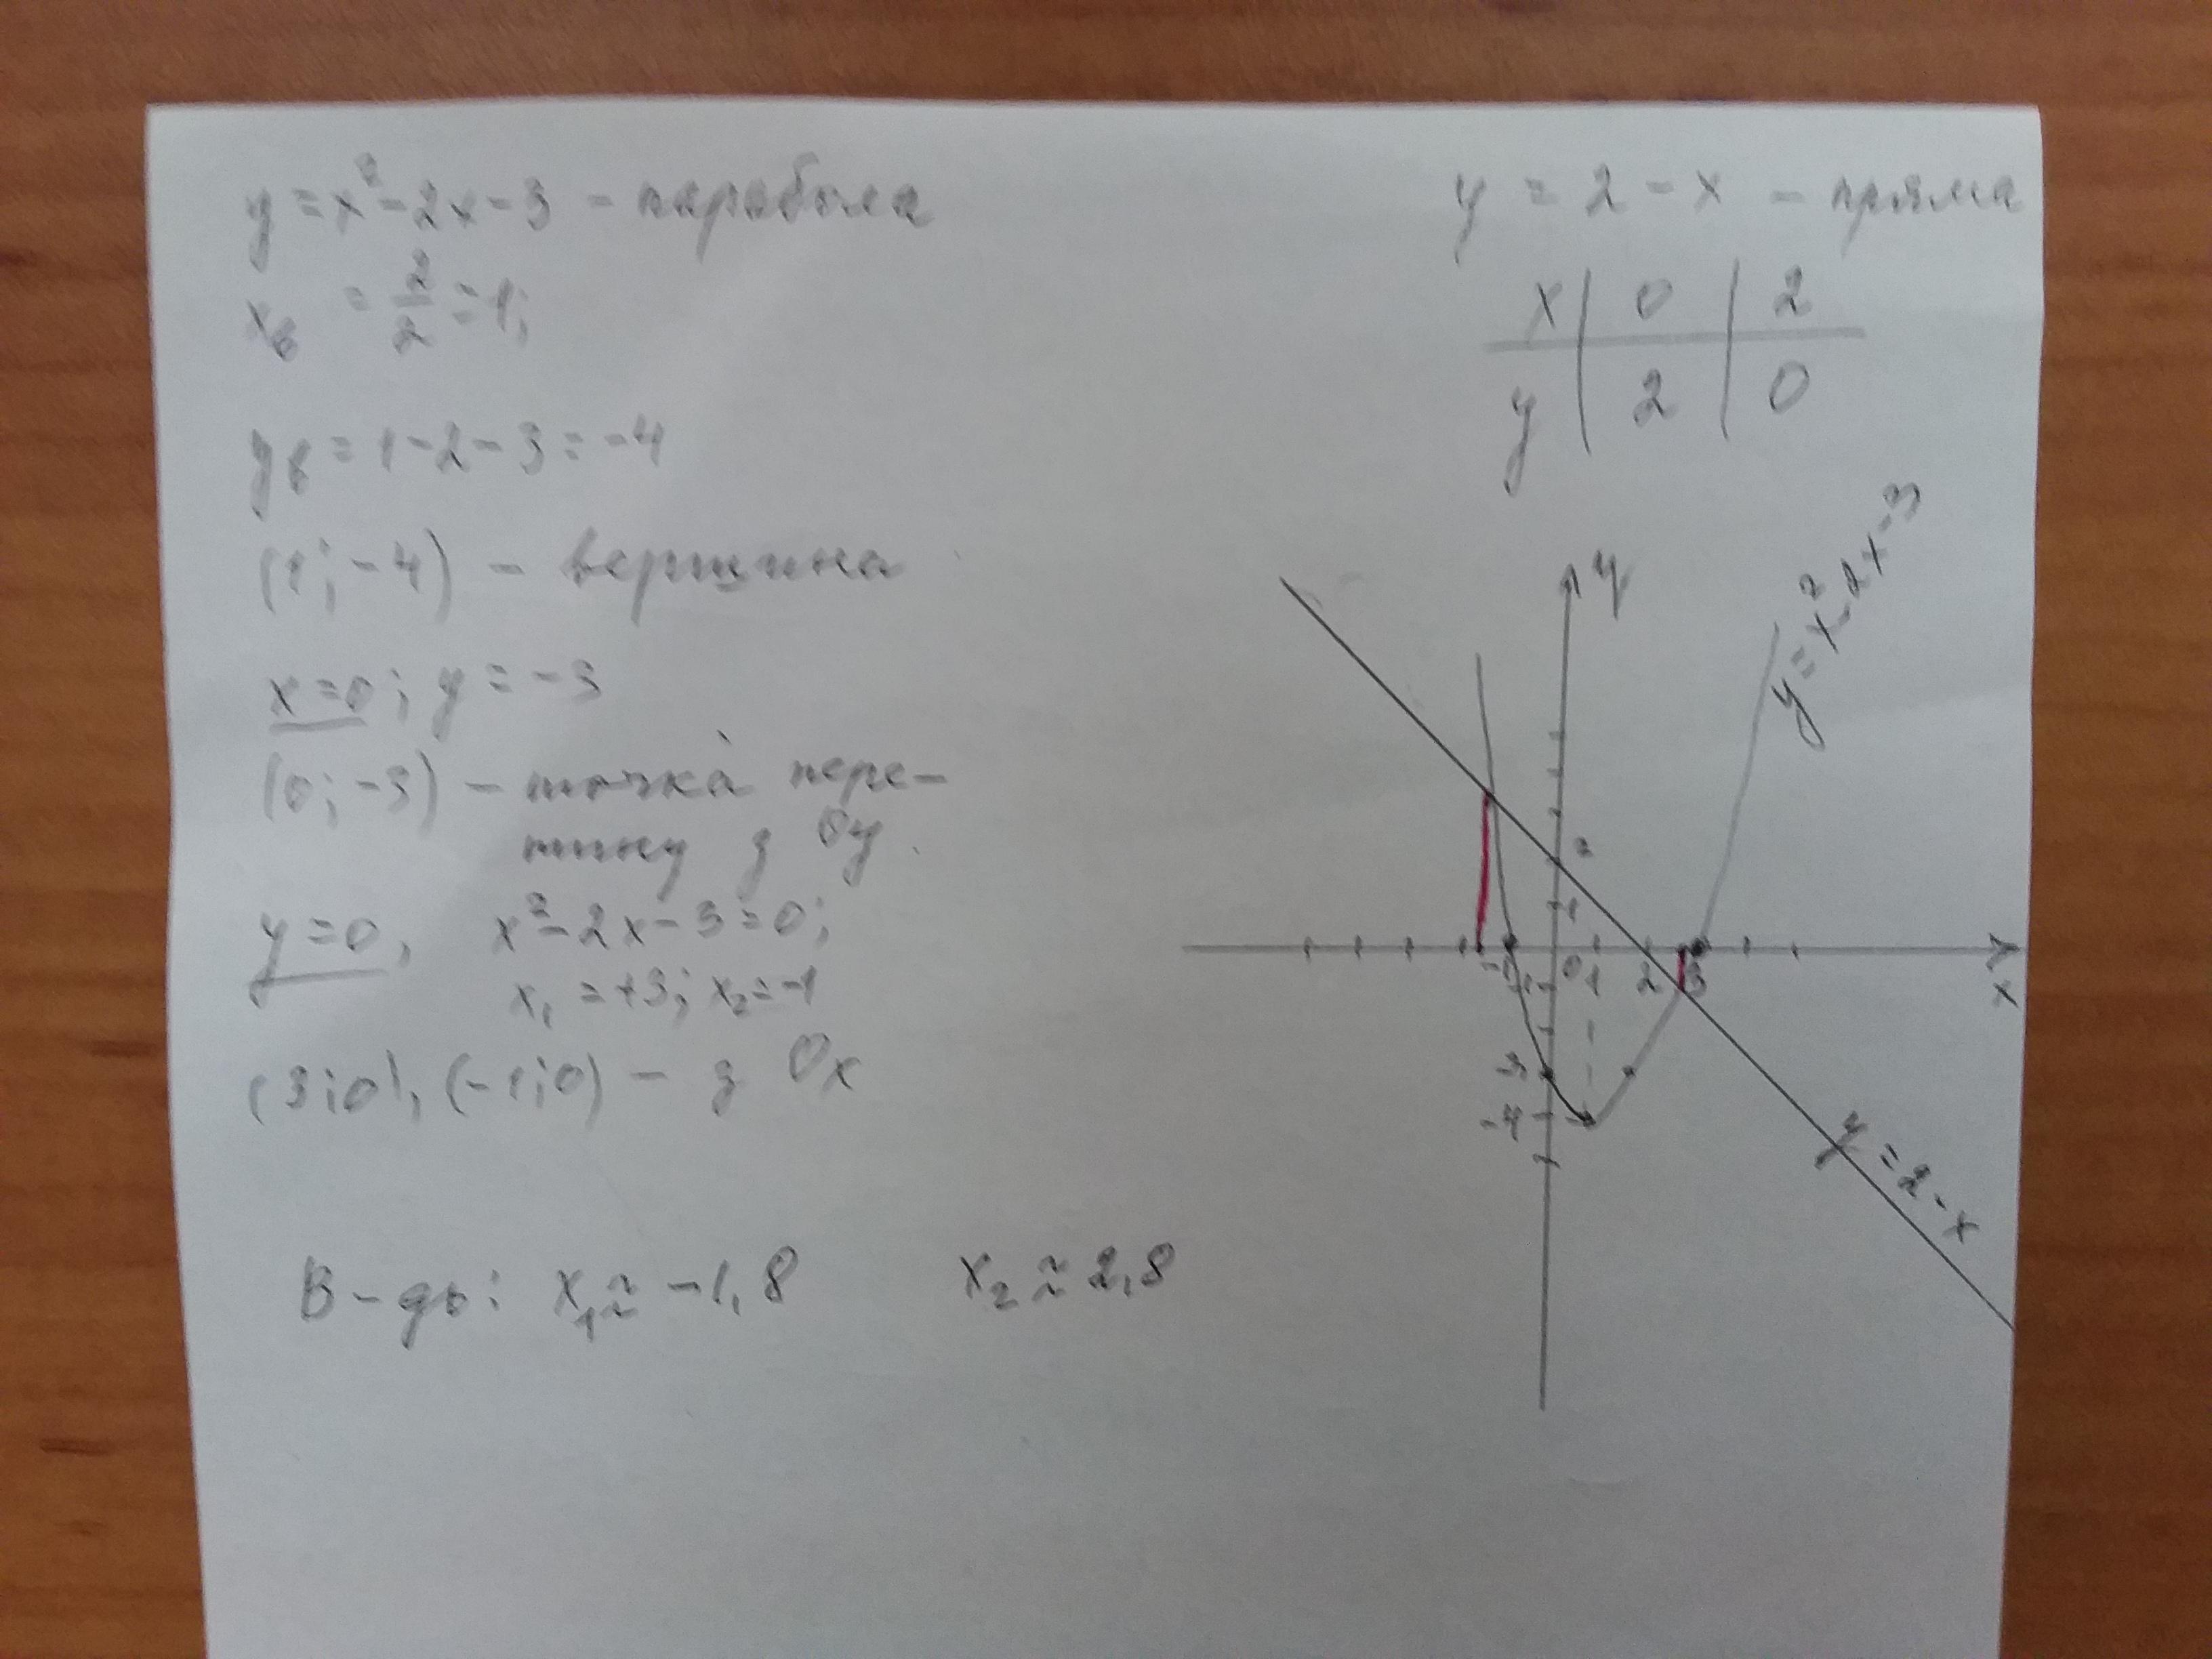 y = x² - 2x - 3 - парабола
xв = 2/2 = 1;
yв = 1 - 2 - 3 = -4
(1; -4) - вершина
x = 0; y = -3
(0; -3) - точка пере-
тину з Oy.
y = 0, x² - 2x - 3 = 0;
x₁ = +3; x₂ = -1
(3; 0), (-1; 0) - з Ox
В-дь: x₁ ≈ -1,8 x₂ ≈ 2,8
y = 2 - x - пряма
x | 0 | 2
y | 2 | 0
y
y = x² - 2x - 3
2
1
-1 0 1 2 3
x
-1
-3
-4
y = 2 - x